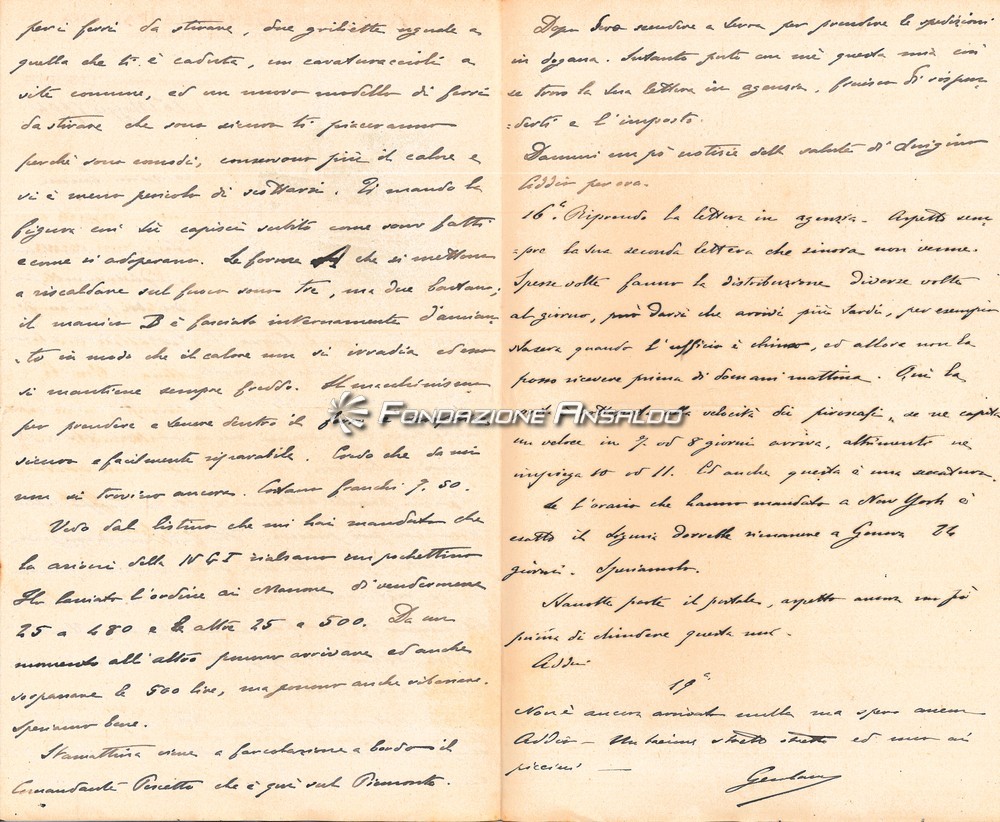 per i ferri da stirare, due grillette uguale a
quella che ti è caduta, un cavaturaccioli a
vite comune, ed un nuovo modello di ferri
da stirare che sono sicuro ti piaceranno
perchè sono comodi, conservano più il calore e
vi è meno pericolo di scottarsi. Ti mando la
figura così tu capisci subito come sono fatti
e come si adoperano. Le forme A che si mettono
a riscaldare sul fuoco sono tre, ma due bastano;
il manico B è fasciato internamente d'amian-
-to in modo che il calore non si irradia ed esso
si mantiene sempre freddo. Il macchinismo
per prendere e tenere dentro il
sicuro e facilmente riparabile. Credo che da noi
non si trovino ancora. Costano franchi 7.50.
Vedo dal listino che mi hai mandato che
le azioni della N G I rialzano un pochettino
Ho lasciato l'ordine ai di vendermene
25 a 480 e le altre 25 a 500. Da un
momento all'altro possono arrivare ed anche
sorpassare le 500 lire, ma possono anche ribassare.
Speriamo bene.
Stamattina viene a far colazione a bordo il
Comandante Pescetto che è quì sul Piemonte.
Dopo devo scendere a terra per prendere le spedizioni
in dogana. Intanto porto con mè questa mia così
se trovo la tua lettera in agenzia, finisco di rispon-
-derti e l'imposto.
Dammi un pò notizie della salute di Luigino
Addio per ora.
16ª. Riprendo la lettera in agenzia. Aspetto sem-
-pre la tua seconda lettera che sinora non venne.
Spesse volte fanno la distribuzione diverse volte
al giorno, può darsi che arrivi più tardi, per esempio
stasera quando l'ufficio è chiuso, ed allora non la
posso ricevere prima di domani mattina. Quì la
velocità dei piroscafi, se ne capita
un veloce in 7 od 8 giorni arriva, altrimenti ne
impiega 10 od 11. Ed anche questa è una seccatura
Se l'orario che hanno mandato a New York è
esatto il Liguria dovrebbe rimanere a Genova 24
giorni. Speriamolo.
Stanotte parte il postale, aspetto ancora un pò
prima di chiudere questa mia.
Addio
19ª
Non è ancora arrivato nulla ma spero ancora
Addio - Un bacione stretto stretto ed uno ai
piccini -
FONDAZIONE ANSALDO